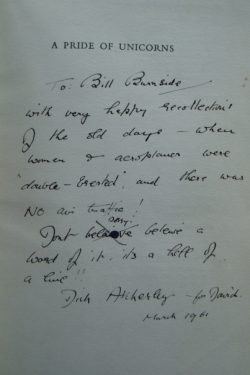 A PRIDE OF UNICORNS
To: Bill Burnside
with very happy recollections
of the old days – when
women & aeroplanes were
"double-breasted" and there was
NO air traffic!
sorry!
Dont believe
word of it. its a hell of
a line!!
Dick Atcherley – for David.
March 1961